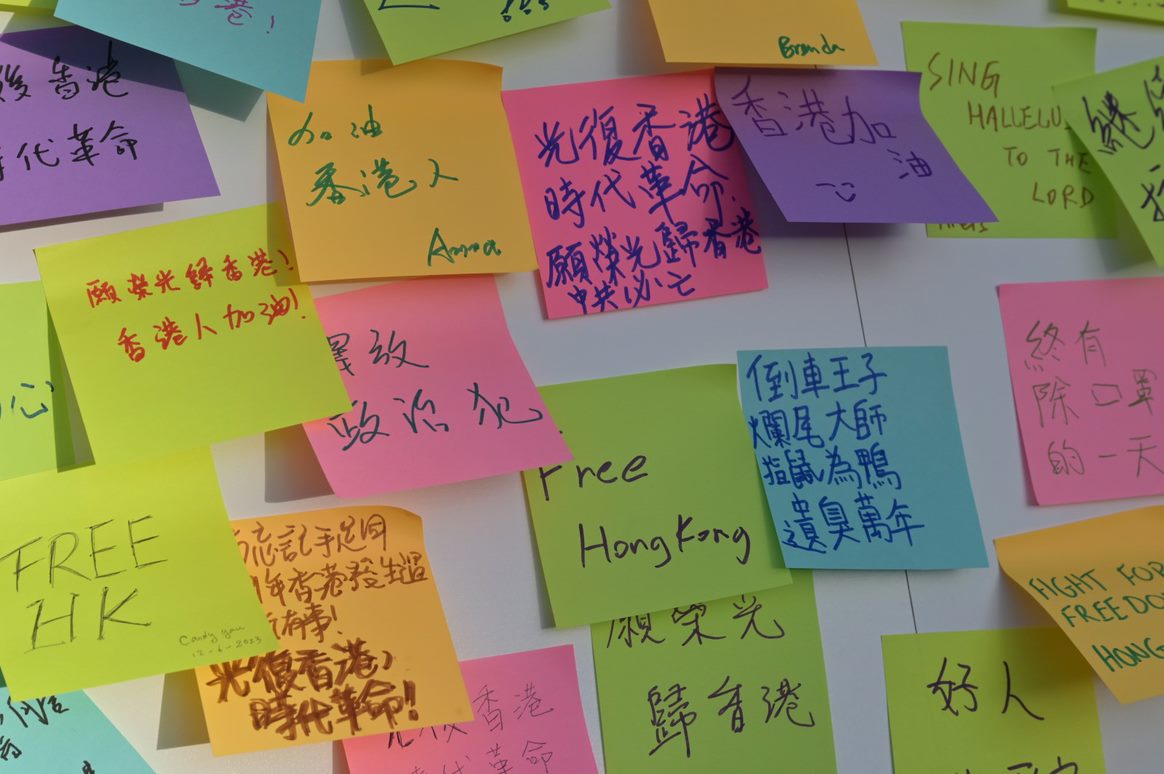 香港!
Brenda
後香港
時代革命
加油
香港人
Anna
光復香港
時代革命.
願榮光歸香港
中共必亡
香港加
油
SING
HALLELU
TO THE
LORD
願榮光歸香港!
香港人加油!
心
釋放
政治犯
Free
Hong Kong
倒車王子
爛尾大師
指鼠為鴨
遺臭萬年
終有
除口罩
的一天
FREE
HK
Candy yau
12-6-2023
忘記手足同
年香港發生過
所有事!
光復香港,
時代革命!!
願榮光
歸香港
FIGHT FOR
FREEDO
HONG
好人
光復香港
時代革命